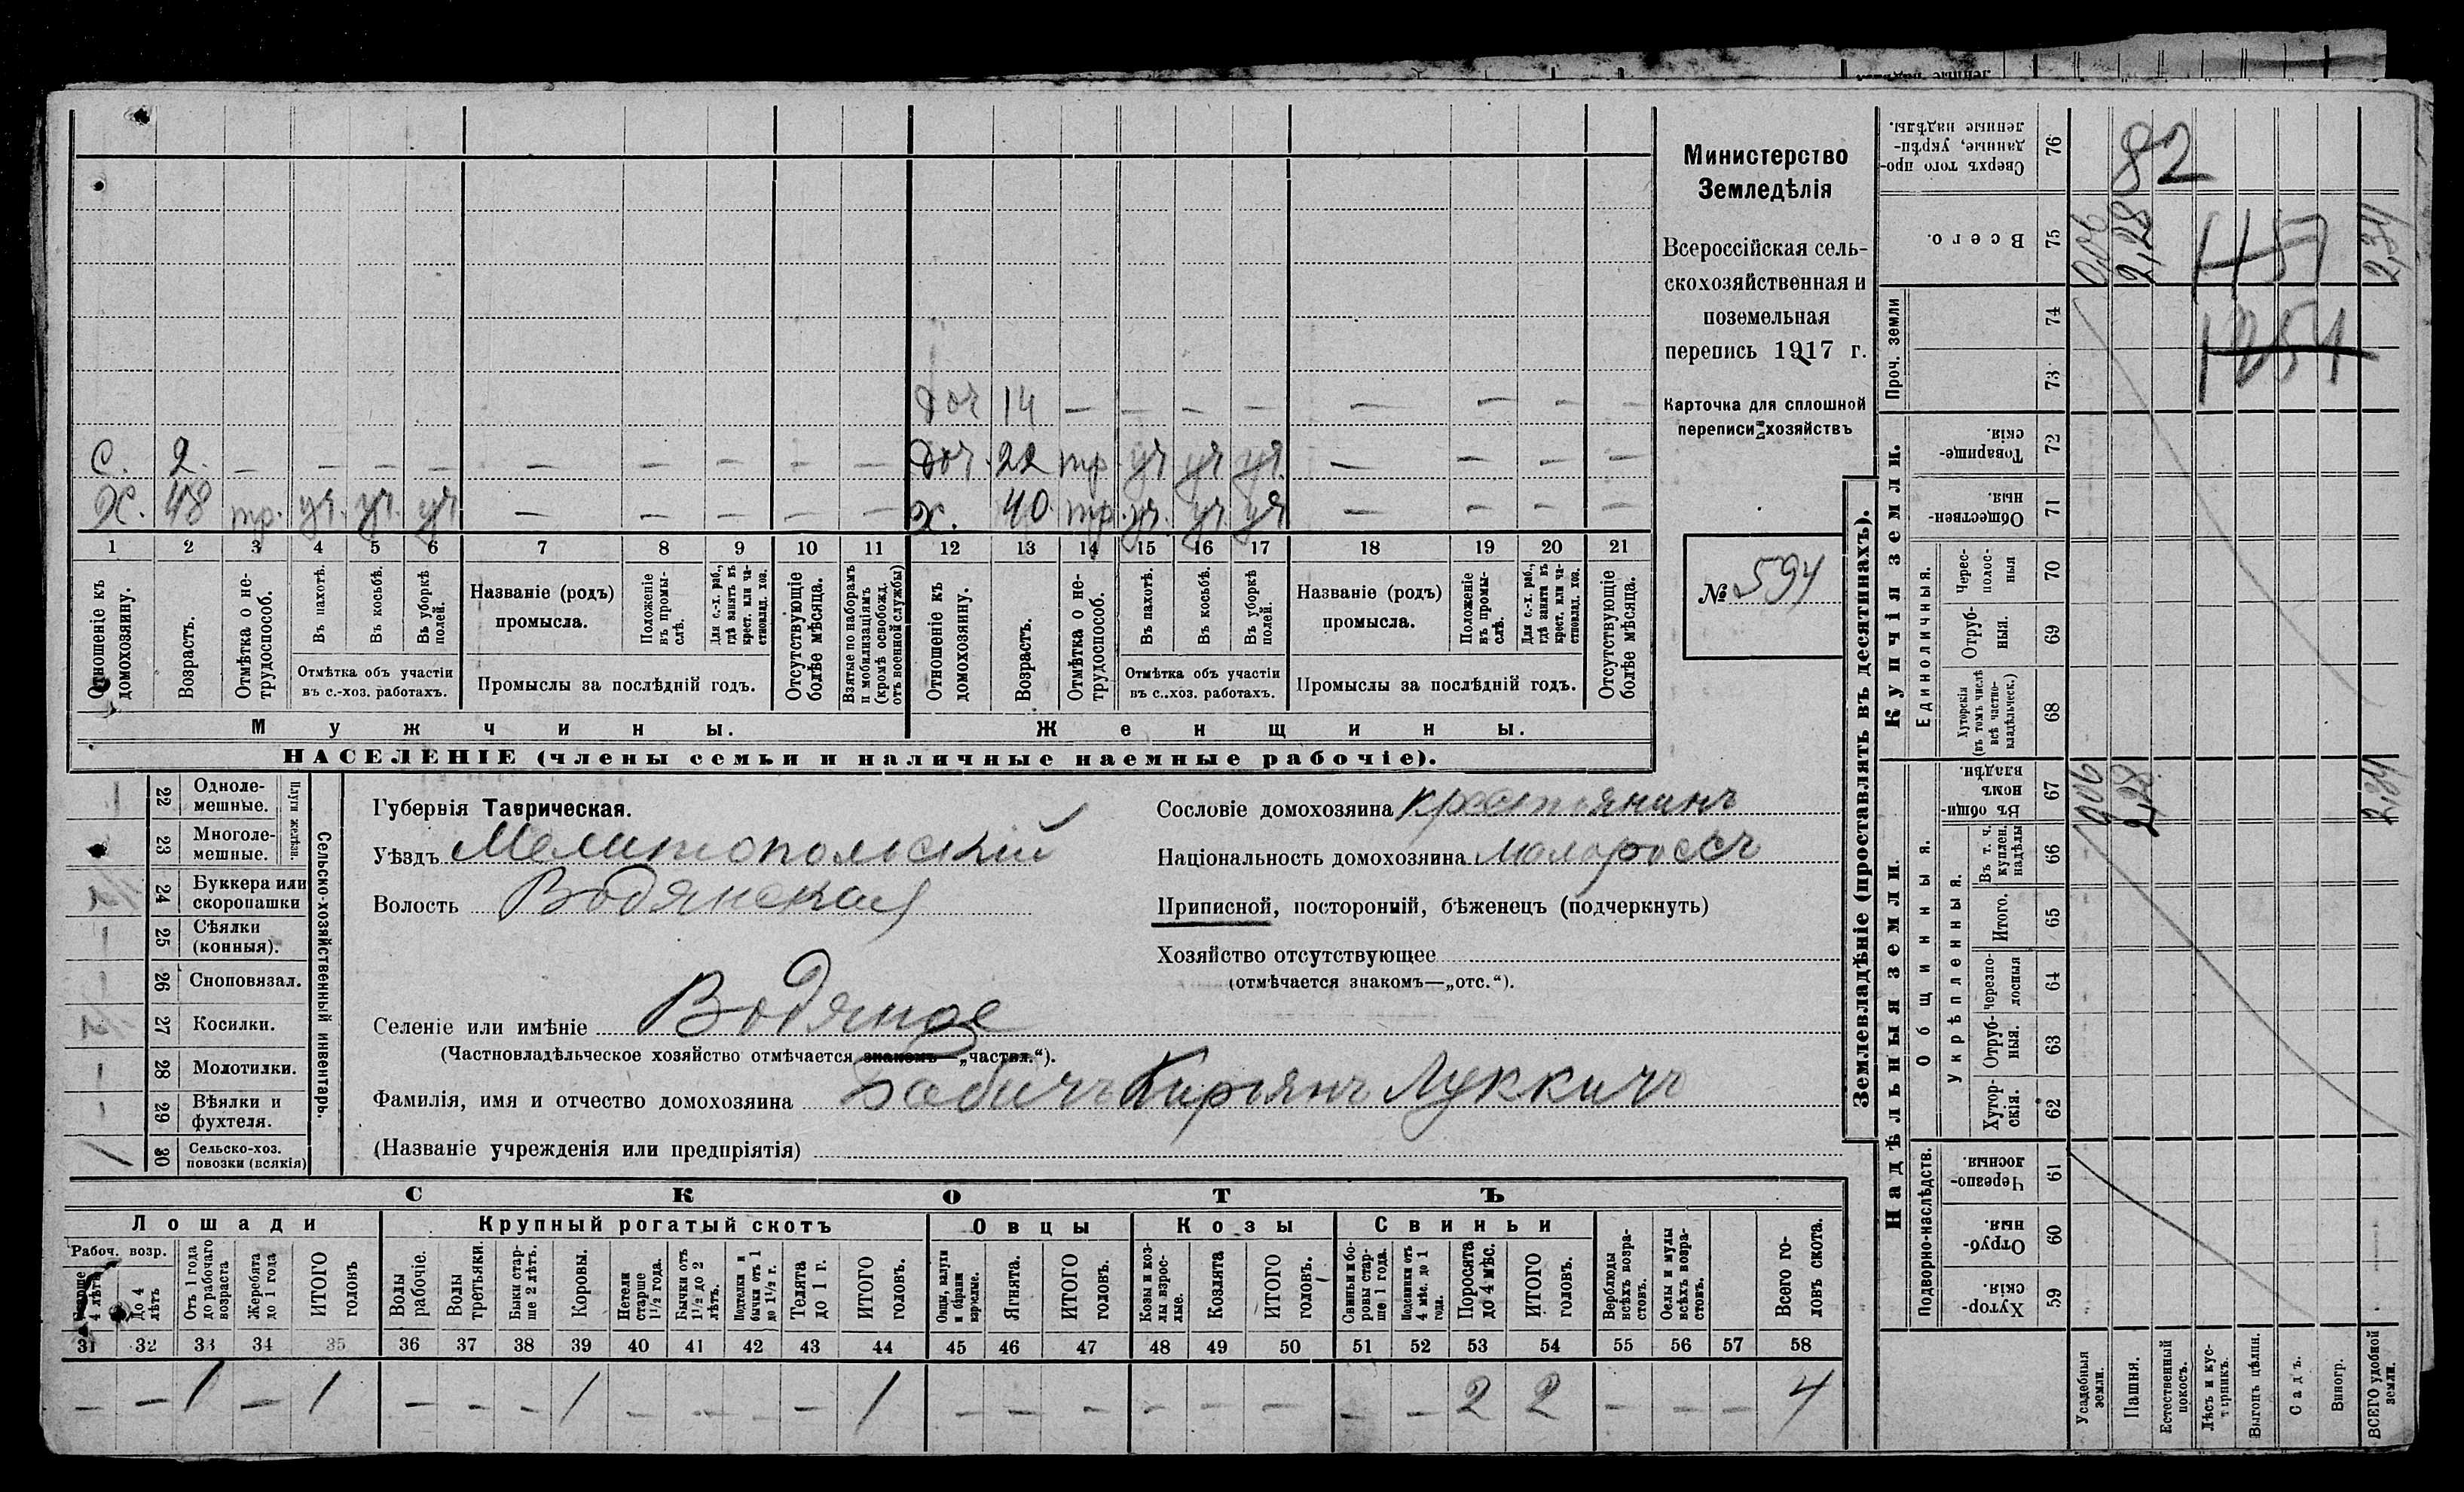 Министерство
Земледѣлія
Всероссійская сель-
скохозяйственная и
поземельная
перепись 1917 г.
Карточка для сплошной
переписи хозяйствъ
№ 594
Доч 14 — — — — — — — —
С. 2. — — — — — — — — —
Доч. 22 тр. уч уч уч. — — — —
Х. 48 тр. уч. уч. уч — — — — —
х. 40 тр. уч. уч уч — — — —
1 2 3 4 5 6 7 8 9 10 11 12 13 14 15 16 17 18 19 20 21
Отношеніе къ домохозяину.
Возрастъ.
Отмѣтка о не-трудоспособ.
Въ пахотѣ.
Въ косьбѣ.
Въ уборкѣ полей.
Отмѣтка объ участіи
въ с.-хоз. работахъ.
Названіе (родъ)
промысла.
Положеніе въ промы-слѣ.
Для с.-х. раб., гдѣ занятъ въ крест. или ча-стновлад. хоз.
Промыслы за послѣдній годъ.
Отсутствующіе болѣе мѣсяца.
Взятые по наборамъ и мобилизаціямъ (кромѣ освобожд. отъ военной службы)
Отношеніе къ домохозяину.
Возрастъ.
Отмѣтка о не-трудоспособ.
Въ пахотѣ.
Въ косьбѣ.
Въ уборкѣ полей.
Отмѣтка объ участіи
въ с..хоз. работахъ.
Названіе (родъ)
промысла.
Положеніе въ промы-слѣ.
Для с.-х. раб., гдѣ занятъ въ крест. или ча-стновлад. хоз.
Промыслы за послѣдній годъ.
Отсутствующіе болѣе мѣсяца.
Мужчины.
Женщины.
НАСЕЛЕНІЕ (члены семьи и наличные наемные рабочіе).
Сельско-хозяйственный инвентарь.
Плуги желѣзн.
22 Одноле-мешные.
23 Многоле-мешные.
24 Буккера или скоропашки
25 Сѣялки (конныя).
26 Сноповязал.
27 Косилки.
28 Молотилки.
29 Вѣялки и фухтеля.
30 Сельско-хоз. повозки (всякія) 1
Губернія Таврическая.
Уѣздъ Мелитопольскій
Волость Водянская
Селеніе или имѣніе Водяное
(Частновладѣльческое хозяйство отмѣчается знакомъ—„частвл.“).
Фамилія, имя и отчество домохозяина Бабичъ Кирьянъ Луккичъ
(Названіе учрежденія или предпріятія)
Сословіе домохозяина крестьянинъ
Національность домохозяина малороссъ
Приписной, посторонній, бѣженецъ (подчеркнуть)
Хозяйство отсутствующее
(отмѣчается знакомъ—„отс.“).
СКОТЪ
Лошади
Крупный рогатый скотъ
Овцы
Козы
Свиньи
Рабоч. возр.
Старше 4 лѣтъ
До 4 лѣтъ
Отъ 1 года до рабочаго возраста
Жеребята до 1 года
ИТОГО головъ
Волы рабочіе.
Волы третьяки.
Быки стар-ше 2 лѣтъ.
Коровы.
Нетели старше 1½ года.
Бычки отъ 1½ до 2 лѣтъ.
Подтелки и бычки отъ 1 до 1½ г.
Телята до 1 г.
ИТОГО головъ.
Овцы, валухи и бараны взрослые.
Ягнята.
ИТОГО головъ.
Козы и коз-лы взрос-лые.
Козлята
ИТОГО головъ.
Свиньи и бо-ровы стар-ше 1 года.
Подсвинки отъ 4 мѣс. до 1 года.
Поросята до 4 мѣс.
ИТОГО головъ.
Верблюды всѣхъ возра-стовъ.
Ослы и мулы всѣхъ возра-стовъ.
Всего го-ловъ скота.
31 32 33 34 35 36 37 38 39 40 41 42 43 44 45 46 47 48 49 50 51 52 53 54 55 56 57 58
— — 1 — 1 — — — 1 — — — — 1 — — — — — — — — 2 2 — — — 4
Землевладѣніе (проставлять въ десятинахъ).
Надѣльныя земли.
Купчія земли.
Проч. земли
Подворно-наслѣдств.
Общинныя.
Укрѣпленныя.
Единоличныя.
76 Сверхъ того про-данные, укрѣп-ленные надѣлы.
75 Всего.
74
73
72 Товарище-скія.
71 Обществен-ныя.
70 Черес-полос-ныя
69 Отруб-ныя.
68 Хуторскія (въ томъ числѣ всѣ частно-владѣльческ.)
67 Въ общи-номъ владѣн.
66 Въ т. ч. куплен. надѣлы
65 Итого.
64 Черезпо-лосныя
63 Отруб-ныя.
62 Хутор-скія.
61 Черезпо-лосныя.
60 Отруб-ныя.
59 Хутор-скія.
Усадебныя земли.
Пашня.
Естественный покосъ.
Лѣсъ и кус-тарникъ.
Выгонъ цѣлин.
Садъ.
Виногр.
ВСЕГО удобной земли.
82
0,06 2,28 2,34
1457
1254
0,06 2,28 2,34